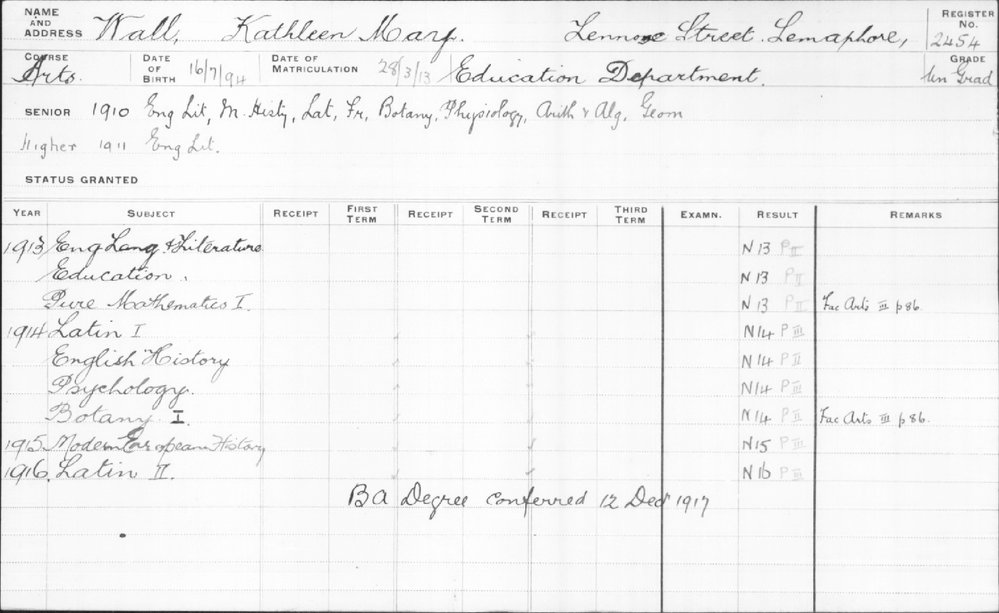 NAME AND ADDRESS Wall, Kathleen Mary. Lennox Street. Semaphore, REGISTER No. 2454
COURSE Arts. DATE OF BIRTH 16/7/94 DATE OF MATRICULATION 28/3/13 Education Department. GRADE Un Grad
SENIOR 1910 Eng Lit, M. Histy, Lat, Fr, Botany, Physiology, Arith & Alg, Geom
Higher 1911 Eng Lit.
STATUS GRANTED
YEAR SUBJECT RECEIPT FIRST TERM RECEIPT SECOND TERM RECEIPT THIRD TERM EXAMN. RESULT REMARKS
1913 Eng Lang & Literature N 13 P II
Education. N 13 P II
Pure Mathematics I. N 13 P II Fac Arts III p 86.
1914 Latin I N 14 P III
English History N 14 P II
Psychology. N 14 P III
Botany I. N 14 P II Fac Arts III p 86.
1915 Modern European History N 15 P III
1916. Latin II. N 16 P III
BA Degree conferred 12 Dec 1917